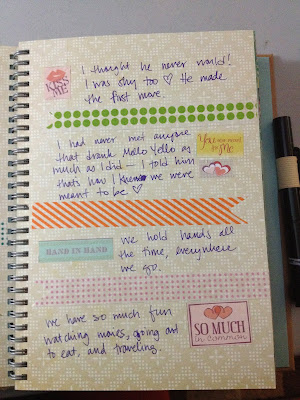 KISS ME
I thought he never would!
I was shy too ♡ He made
the first move.
I had never met anyone
that drank Mello Yello as
much as I did – I told him
thats how I knew we were
meant to be. ♡
You are meant to Me
HAND IN HAND
We hold hands all
the time, everywhere
we go.
We have so much fun
watching movies, going out
to eat, and traveling.
SO MUCH
in common